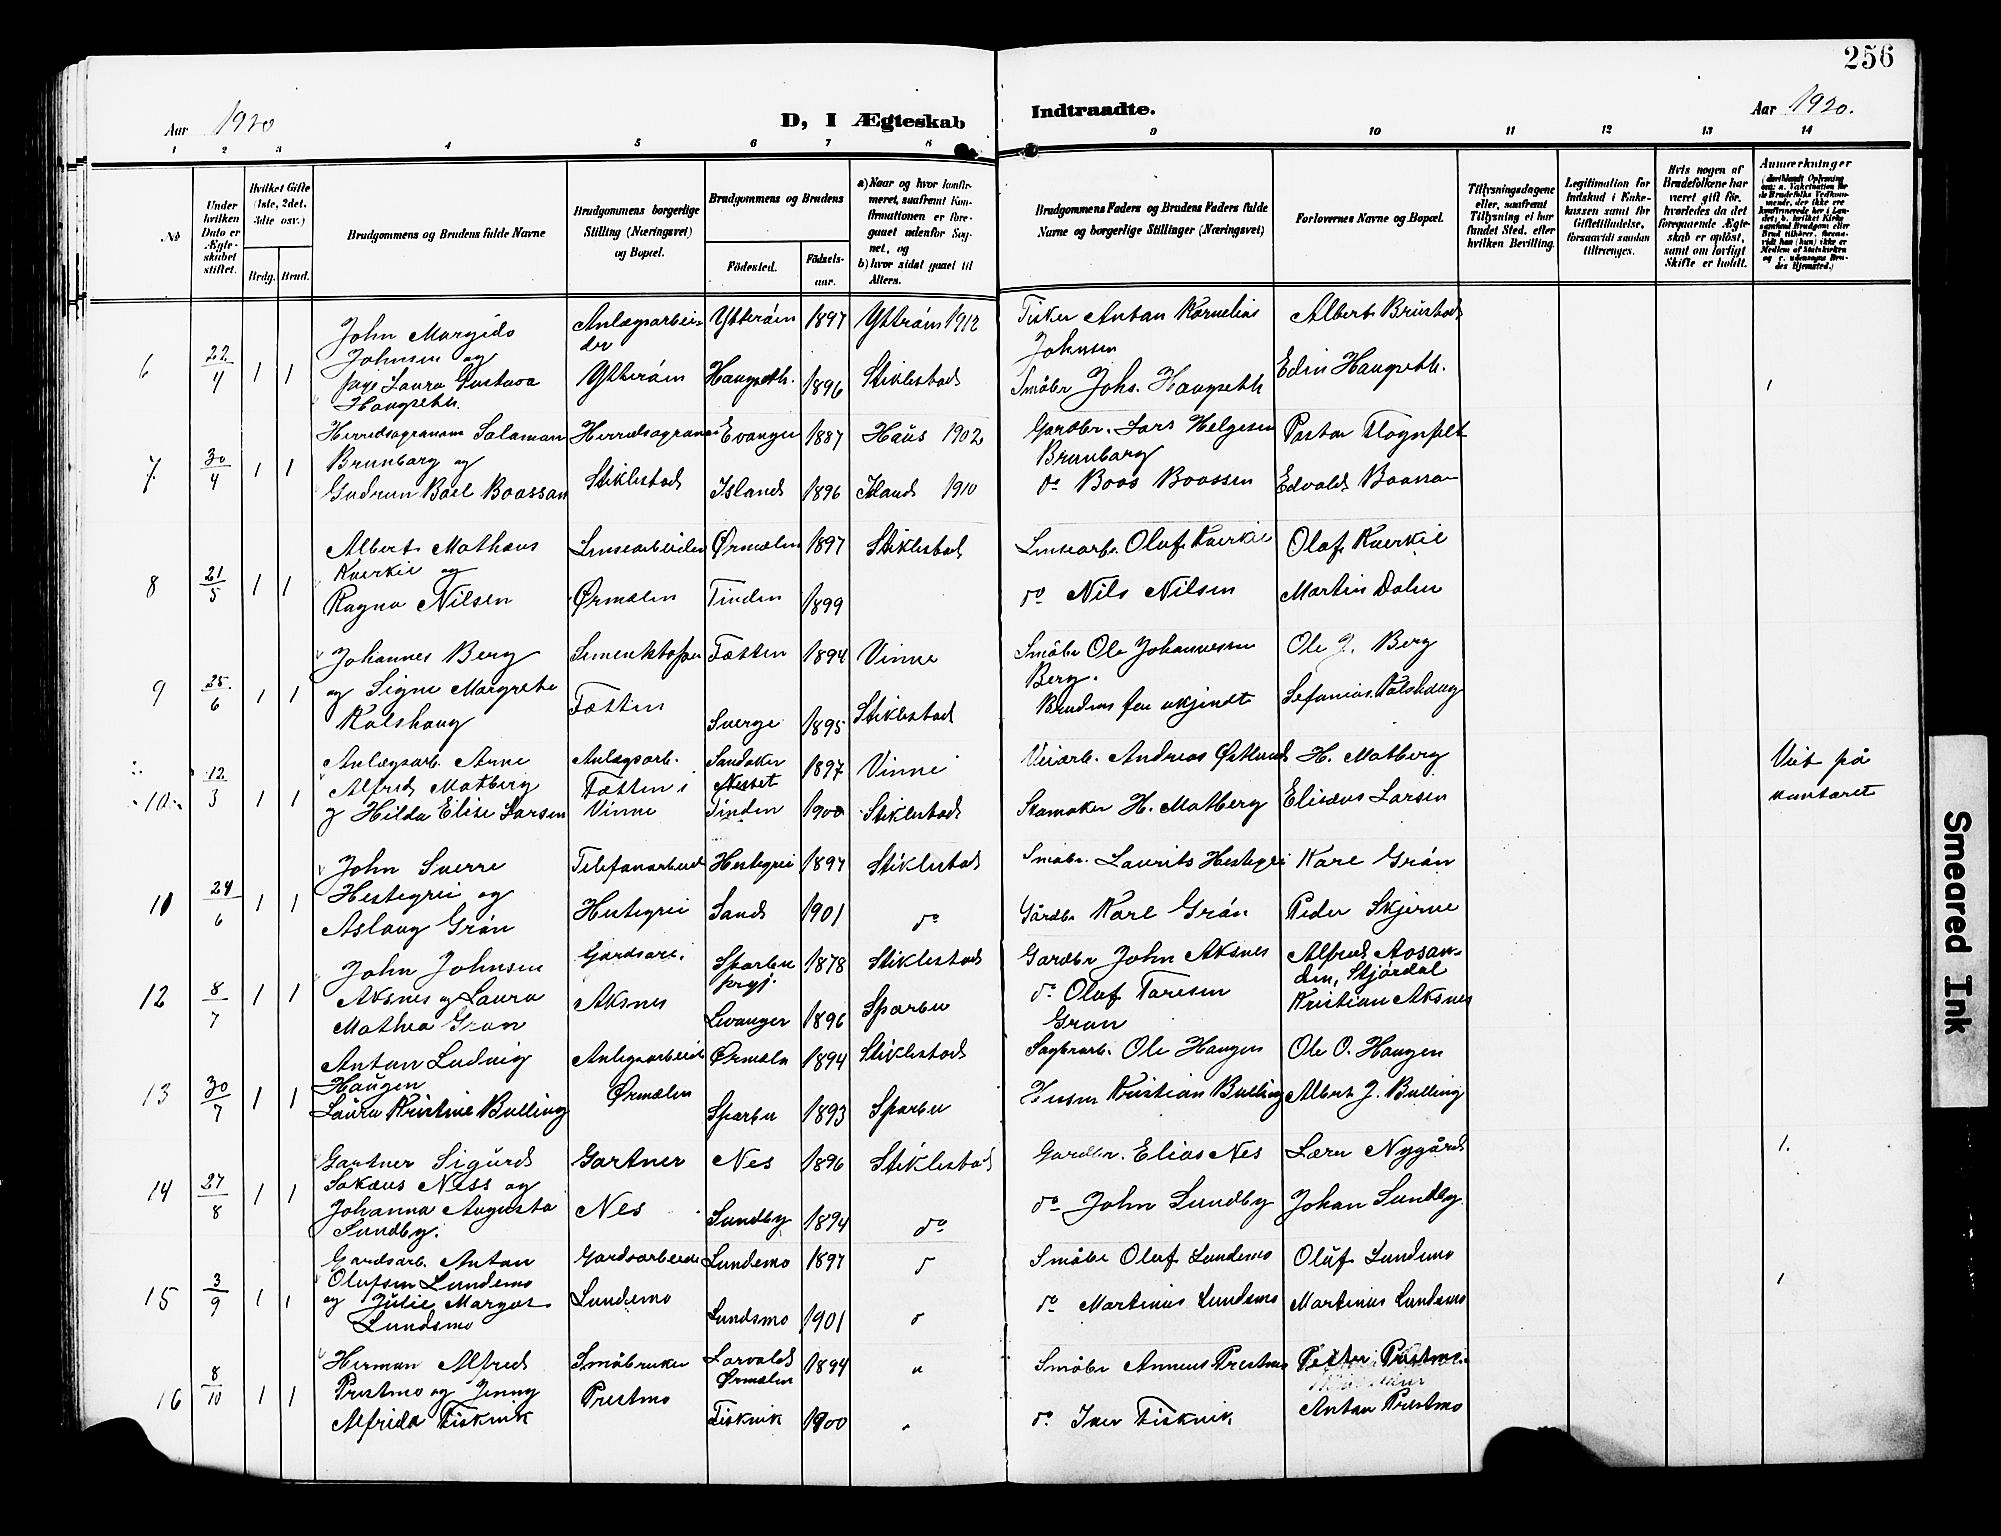 256
Aar 1920
D, I Ægteskab
Indtraadte.
Aar 1920.
1 2 3 4 5 6 7 8 9 10 11 12 13 14
No
Under hvilken Dato er Ægteskabet stiftet.
Hvilket Gifte (1ste, 2det, 3die osv.)
Brdg. Brud.
Brudgommens og Brudens fulde Navne
Brudgommens borgerlige Stilling (Næringsvei) og Bopæl.
Brudgommens og Brudens
Födested.
Födselsaar.
a) Naar og hvor konfirmeret, saafremt Konfirmationen er foregaaet udenfor Sognet, og
b) hvor sidst gaaet til Alters.
Brudgommens Faders og Brudens Faders fulde Navne og borgerlige Stillinger (Næringsvei)
Forlovernes Navne og Bopæl.
Tillysningsdagene eller, saafremt Tillysning ei har fundet Sted, efter hvilken Bevilling.
Legitimation for Indskud i Enkekassen samt for Giftetilladelse, forsaavidt saadan tiltrænges.
Hvis nogen af Brudefolkene har været gift för, hvorledes da det foregaaende Ægteskab er oplöst, samt om lovligt Skifte er holdt.
Anmærkninger
6 22/4 1 1
John Margido
Johnsen og
Laura Gustava
Haugseth.
Anlægsarbeider
Ytterøen
Ytterøen 1897 Yttrøen 1912
Haugseth. 1896 Stiklestad
Fisker Anton Kornelius
Johnsen
Småbr. Johs. Haugseth
Albert Brustad
Edin Haugseth.
1
7. 30/4 1 1
Herredsagronom Salamon
Brunborg og
Gudrun Boel Boassen
Herredsagronom
Stiklestad
Evanger 1887 Haus 1902
Island 1896 Island 1910
Gardbr. Lars Helgesen
Brunborg
do Boas Boassen
Pastor
Edvald
8 21/5 1 1
Albert Mathæus
Kverkie og
Ragna Nilsen
Lensearbeider
Ørmelen
Ørmelen 1897 Stiklestad
Tinden 1899
Lensearb. Oluf Kverkie
do Nils Nilsen
Olaf Kverkie
Martin Dalen
9 25/6 1 1
Johannes Berg
og Signe Margrete
Kolshaug
Fætten
Fætten 1894 Vinne
Sverge 1895 Stiklestad
Småbr Ole Johannessen
Berg.
Brudens far ukjendt
Ole J. Berg
Sefanias Kolshaug
10 12/3 1 1
Anlægsarb. Arne
Alfred Motberg
og Hilda Elise Larsen
Anlægsarb.
Fætten i
Vinne
Sandaker
Nesset 1897 Vinne
Tinden 1900 Stiklestad
Veiarb. Andreas Østlund
Skomaker H. Motberg
H. Motberg
Eliseus Larsen
Viet på
kontoret
11 24/6 1 1
John Sverre
Hestegrei og
Aslaug Grøn
Telefonarbeid
Hestegrei
Hestegrei 1897 Stiklestad
Sand 1901 do
Småbr. Laurits Hestegrei
Gårdbr Karl Grøn
Karl Grøn
Peder Skjerve
12 8/7 1 1
John Johnsen
Aksnes og Laura
Mathea Gran
Gardsarb.
Aksnes
Sparbu
prgj. 1878 Stiklestad
Levanger 1896 Sparbu
Gardbr John Aksnes
do Oluf Toresen
Gran
Alfred Aosanden,
Stjørdal
Kristian Aksnes
13 30/7 1 1
Anton Ludvig
Haugen
Laura Kristine Bulling
Anlegsarbeid
Ørmelen
Ørmeln 1894 Stiklestad
Sparbu 1893 Sparbu
Sagbrarb. Ole Haugen
Husm Kristian Bulling
Ole O. Haugen
Albert J. Bulling
14 27/8 1 1
Gartner Sigurd
Sakæus Ness og
Johanna Augusta
Sundby.
Gartner
Nes
Nes 1896 Stiklestad
Sundby 1894 do
Gardbr. Elias Nes
do John Sundby
Lærer Nygård
Johan Sundby
1.
15 3/9 1 1
Gardsarb. Anton
Olufsen Lundemo
og Julie Margot
Lundemo
Gardsarbeid
Lundemo
Lundemo 1897
Lundemo 1901
Småbr Oluf Lundemo
do Martinus Lundemo
Oluf Lundemo
Martinus Lundemo
1
16 8/10 1 1
Herman Alfred
Prestmo og Jenny
Alfrida Fiskvik
Småbruker
Prestmo
Ørmelen 1894 "
Fiskvik 1900 "
Småbr Anneus Prestmo
do. Iver Fiskvik
Petter Prestmo
Anton Prestmo
Smeared Ink